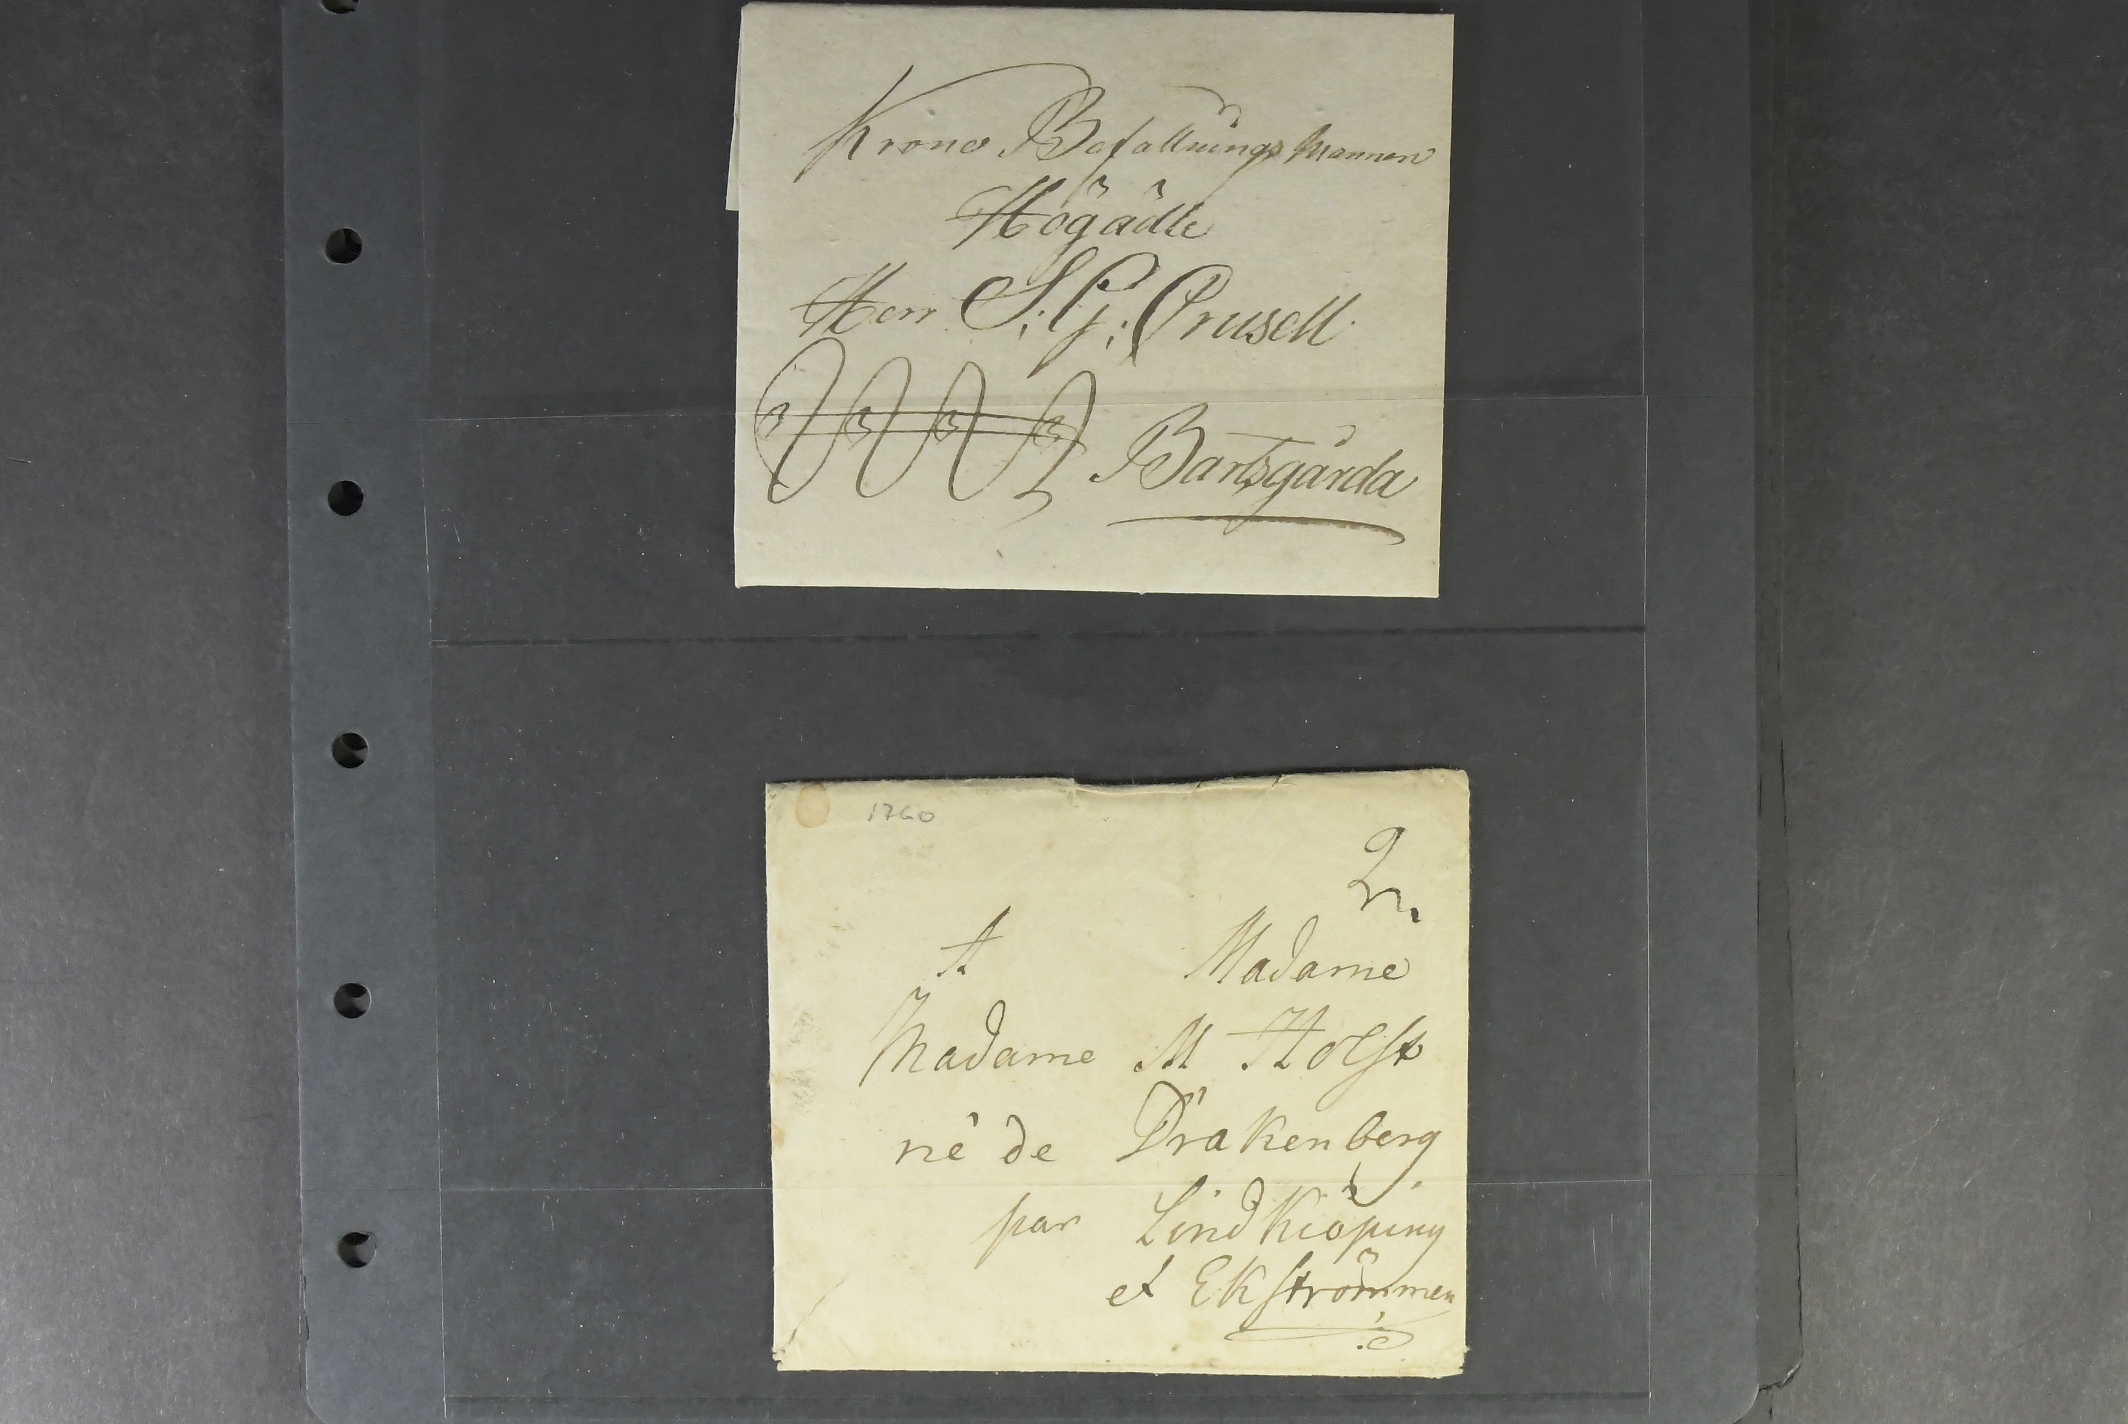 Krono Befallnings Mannen
Högädle
Herr S: G: Prusell
Bartsgårda
1760
A Madame
Madame M Holst
né de Drakenberg
par Lindkiöping
et Ekströmmen